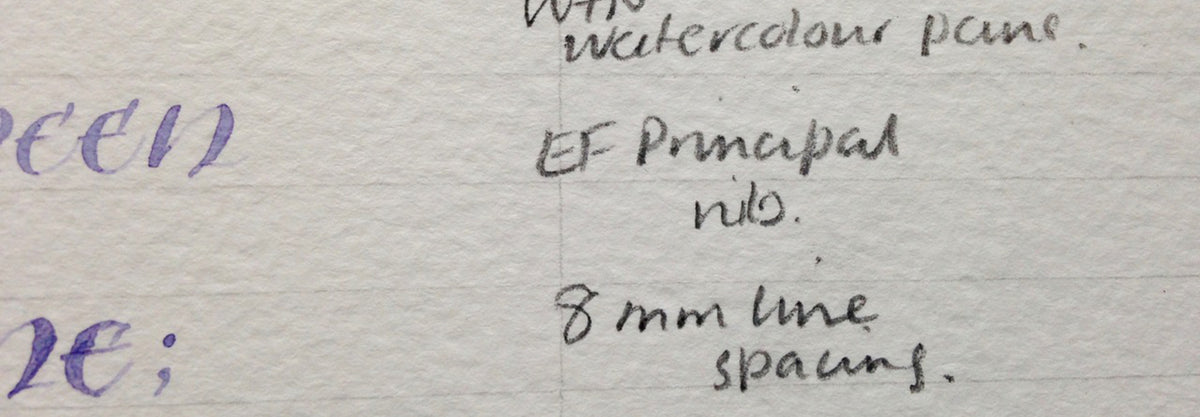 watercolour paint.
EF Principal
nib.
8 mm line
spacing.